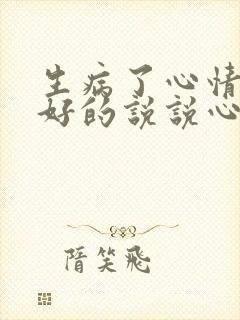 生病了心情
好的説説心
隋笑飛